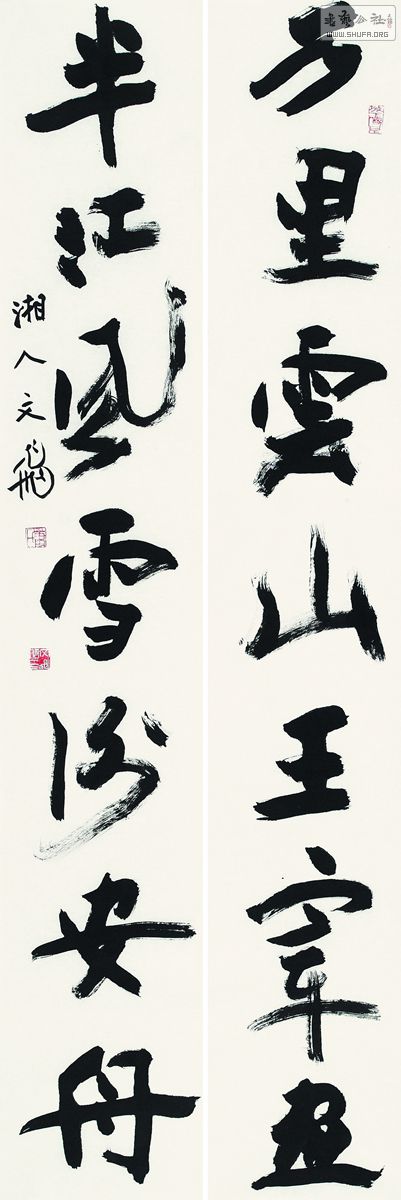 万里雲山王宰畫
半江風雪謝安舟
湘人文
书艺公社
WWW.SHUFA.ORG